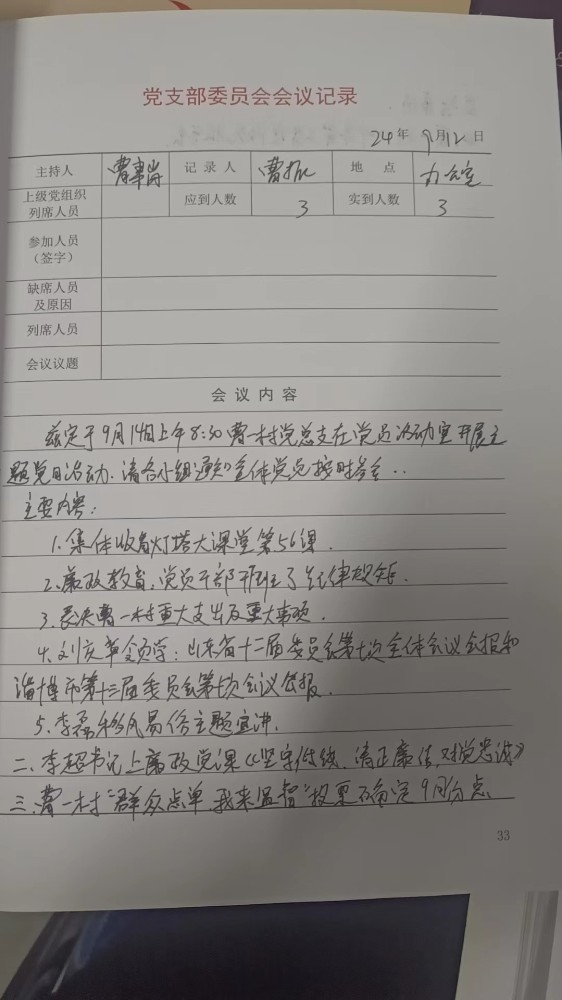 党支部委员会会议记录
24年 9月12日
主持人 曹 记录人 曹振 地点 办公室
上级党组织列席人员 应到人数 3 实到人数 3
参加人员
（签字）
缺席人员
及原因
列席人员
会议议题
会议内容
兹定于9月14日上午8:30曹一村党总支在党员活动室开展主
题党日活动.请各小组通知全体党员按时参会..
主要内容：
1.集体收看灯塔大课堂第56课.
2.廉政教育.党员干部 纪律规矩.
3.表决曹一村重大支出及重大事项.
4.刘 领学：山东省十二届委员会第七次全体会议公报和
淄博市第十三届委员会第 次会议公报.
5.李磊移风易俗主题宣讲.
二、李超书记上廉政党课《坚守传统、清正廉洁、对党忠诚》
三.曹一村"群众点单.我来监督"投票确定9月份点
33